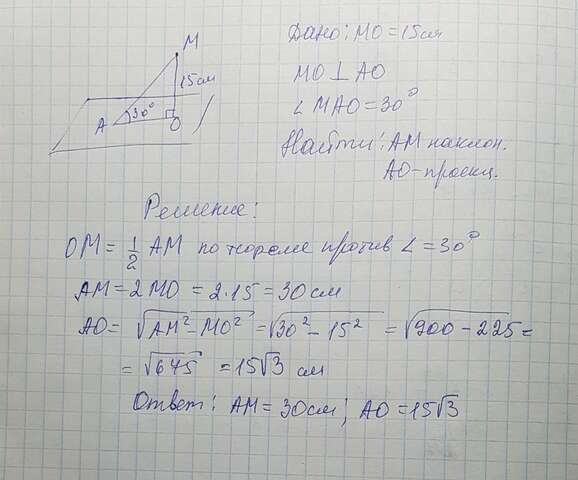 M
15см
30°
A
O
Дано: MO = 15см
MO ⊥ AO
∠ MAO = 30°
Найти: AM наклон.
AO - проекц.
Решение:
OM = 1/2 AM по теореме против ∠ = 30°
AM = 2 MO = 2·15 = 30 см
AO = √AM² - MO² = √30² - 15² = √900 - 225 =
= √675 = 15√3 см
Ответ: AM = 30см; AO = 15√3